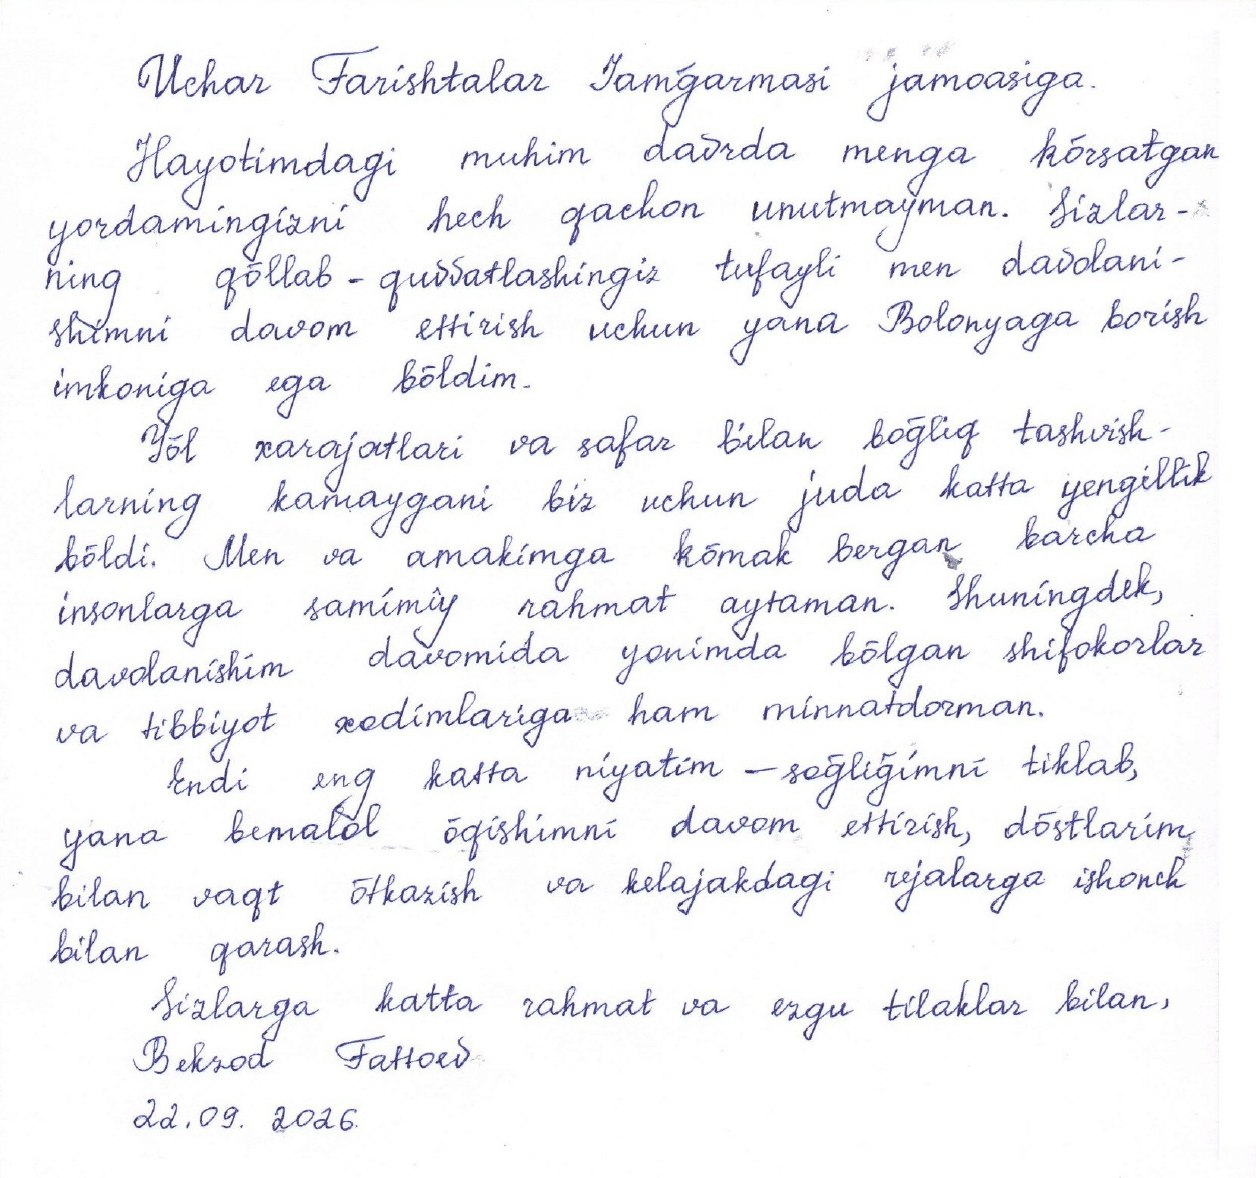 Uchar Farishtalar Jamḡarmasi jamoasiga.
Hayotimdagi muhim davrda menga kōrsatgan
yordamingizni hech qachon unutmayman. Sizlar-
ning qōllab-quvvatlashingiz tufayli men davolani-
shimni davom ettirish uchun yana Bolonyaga borish
imkoniga ega bōldim.
Yōl xarajatlari va safar bilan boḡliq tashvish-
larning kamaygani biz uchun juda katta yengillik
bōldi. Men va amakimga kōmak bergan barcha
insonlarga samimiy rahmat aytaman. Shuningdek,
davolanishim davomida yonimda bōlgan shifokorlar
va tibbiyot xodimlariga ham minnatdorman.
Endi eng katta niyatim – soḡliḡimni tiklab,
yana bemalol ōqishimni davom ettirish, dōstlarim
bilan vaqt ōtkazish va kelajakdagi rejalarga ishonch
bilan qarash.
Sizlarga katta rahmat va ezgu tilaklar bilan,
Bekzod Fattoev
22.09.2026